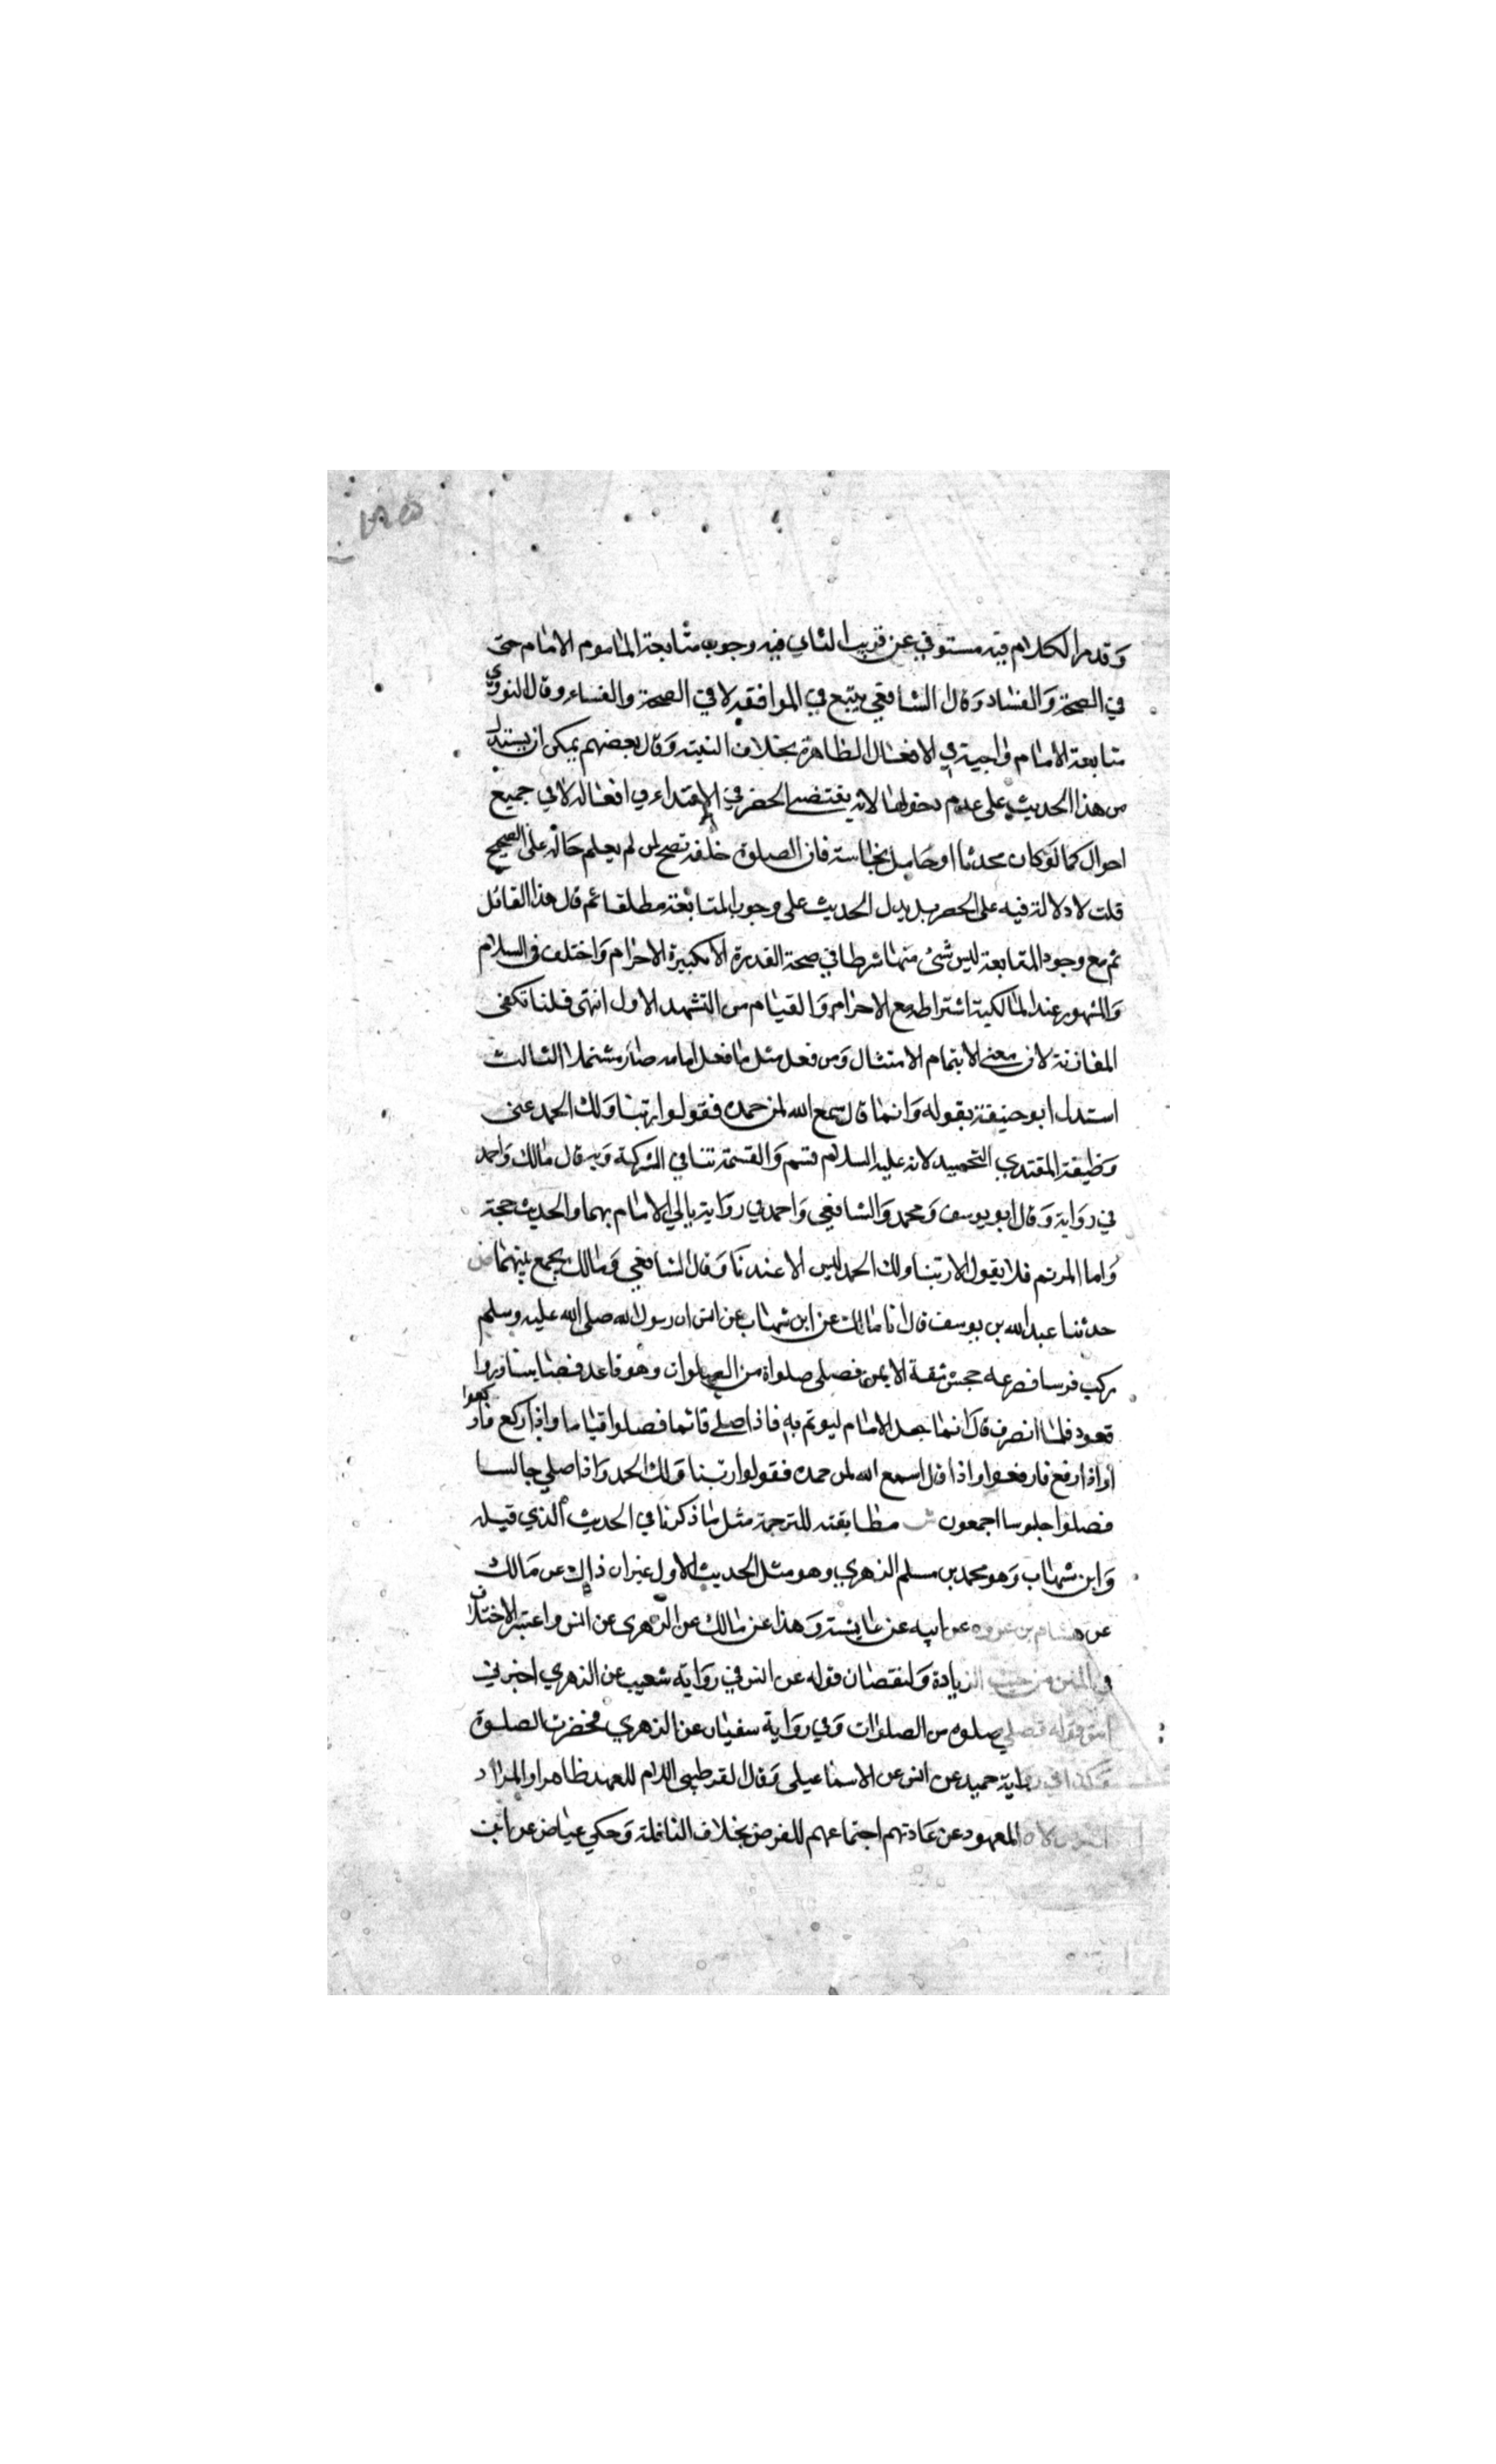 وقد مر الكلام فيه مستوفي عن قريب الثاني فيه وجوب متابعة الماموم الامام حتى
في الصحة والفساد وقال الشافعي يتبع في الموافقة لا في الصحة والفساد وقال النووي
متابعة الامام واجبة في الافعال الظاهرة بخلاف النية وقال بعضهم يمكن ان يستدل
من هذا الحديث على عدم دخولها لانه يقتضي الحصر في الاقتداء في افعاله لا في جميع
احوال كما لو كان محدثا او حامل نجاسة فان الصلوة خلفه تصح لمن لم يعلم حاله على الصحيح
قلت لا دلالة فيه على الحصر بل يدل الحديث على وجوب المتابعة مطلقا ثم قال هذا القائل
ثم مع وجود المتابعة ليس شئ منها شرطا في صحة القدوة الا تكبيرة الاحرام واختلف في السلام
والمشهور عند المالكية اشتراطه مع الاحرام والقيام من التشهد الاول انتهى قلنا تكفي
المقارنة لان معنى الايتمام الامتثال ومن فعل مثل ما فعل امامه صار ممتثلا الثالث
استدل ابو حنيفة بقوله وانما قال سمع الله لمن حمده فقولوا ربنا ولك الحمد على
وظيفة المقتدي التحميد لانه عليه السلام قسم والقسمة تنافي الشركة وبه قال مالك واحمد
في رواية وقال ابو يوسف ومحمد والشافعي واحمد في رواية ياتي الامام بهما والحديث حجة
واما المؤتم فلا يقول الا ربنا ولك الحمد ليس الا عندنا وقال الشافعي ومالك يجمع بينهما ص
حدثنا عبد الله بن يوسف قال انا مالك عن ابن شهاب عن انس ان رسول الله صلى الله عليه وسلم
ركب فرسا فصرعه جحش شقة الايمن فصلى صلواة من الصلوات وهو قاعد فصلينا وراوا
قعود فلما انصرف قال انما جعل الامام ليوتم به فاذا صلى قائما فصلوا قياما واذا ركع فاركعوا
واذا رفع فارفعوا واذا قال سمع الله لمن حمده فقولوا ربنا ولك الحمد واذا صلي جالسا
فصلوا جلوسا اجمعون ش مطابقته للترجمة مثل ما ذكرنا في الحديث الذي قبله
وابن شهاب وهو محمد بن مسلم الزهري وهو مثل الحديث الاول غير ان ذاك عن مالك
عن هشام بن عروه عن ابيه عن عايشة وهذا عن مالك عن الزهري عن انس واعتبر الاختلاف
في المتن من حيث الزيادة ولنقصان قوله عن انس في رواية شعيب عن الزهري اخبرني
انس قوله فصلي صلوه من الصلوات وفي رواية سفيان عن الزهري فحضرت الصلوة
وكذا في رواية حميد عن انس عن الاسماعيلي وقال القرطبي اللام للعهد ظاهرا والمراد
المعهود عن عادتهم اجتماعهم للفرض بخلاف النافلة وحكي عياض عن ابن